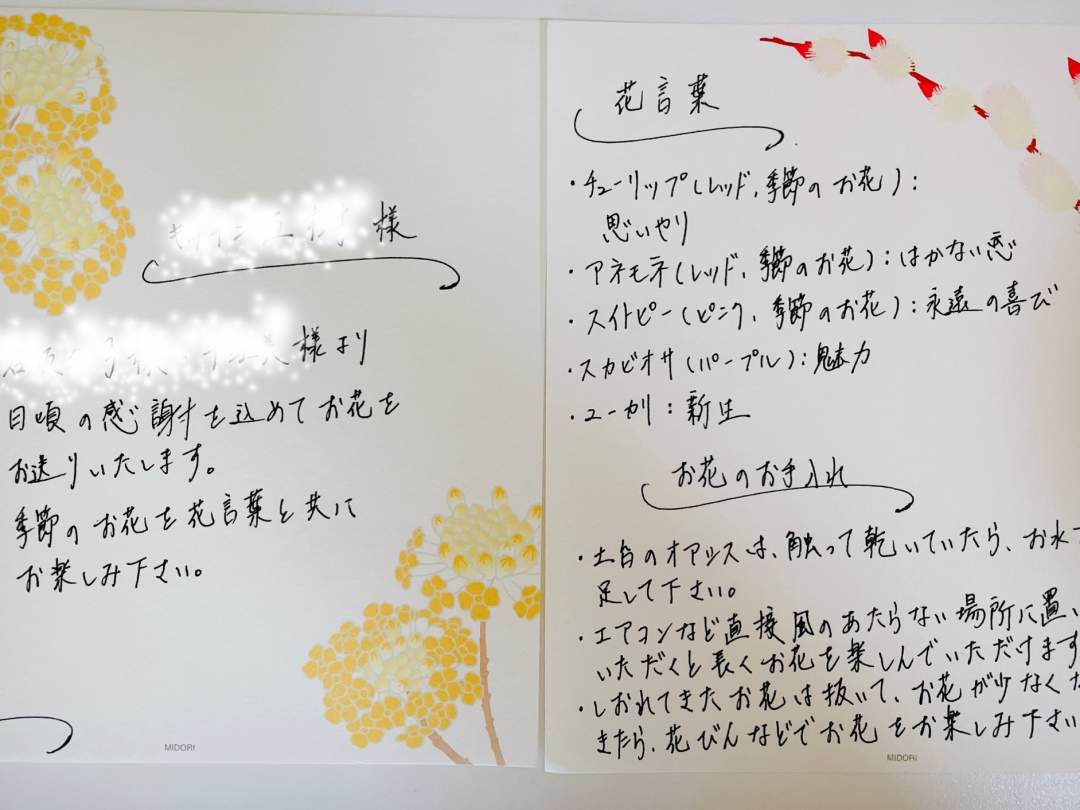 様
様より
日頃の感謝を込めてお花を
お送りいたします。
季節のお花を花言葉と共に
お楽しみ下さい。
MIDORI
花言葉
・チューリップ(レッド、季節のお花):
思いやり
・アネモネ(レッド、季節のお花):はかない恋
・スイトピー(ピンク、季節のお花):永遠の喜び
・スカビオサ(パープル):魅力
・ユーカリ:新生
お花のお手入れ
・土台のオアシスは、触って乾いていたら、お水を
足して下さい。
・エアコンなど直接風のあたらない場所に置い
いただくと長くお花を楽しんでいただけます
・しおれてきたお花は抜いて、お花が少なくな
きたら、花びんなどでお花をお楽しみ下さい
MIDORI